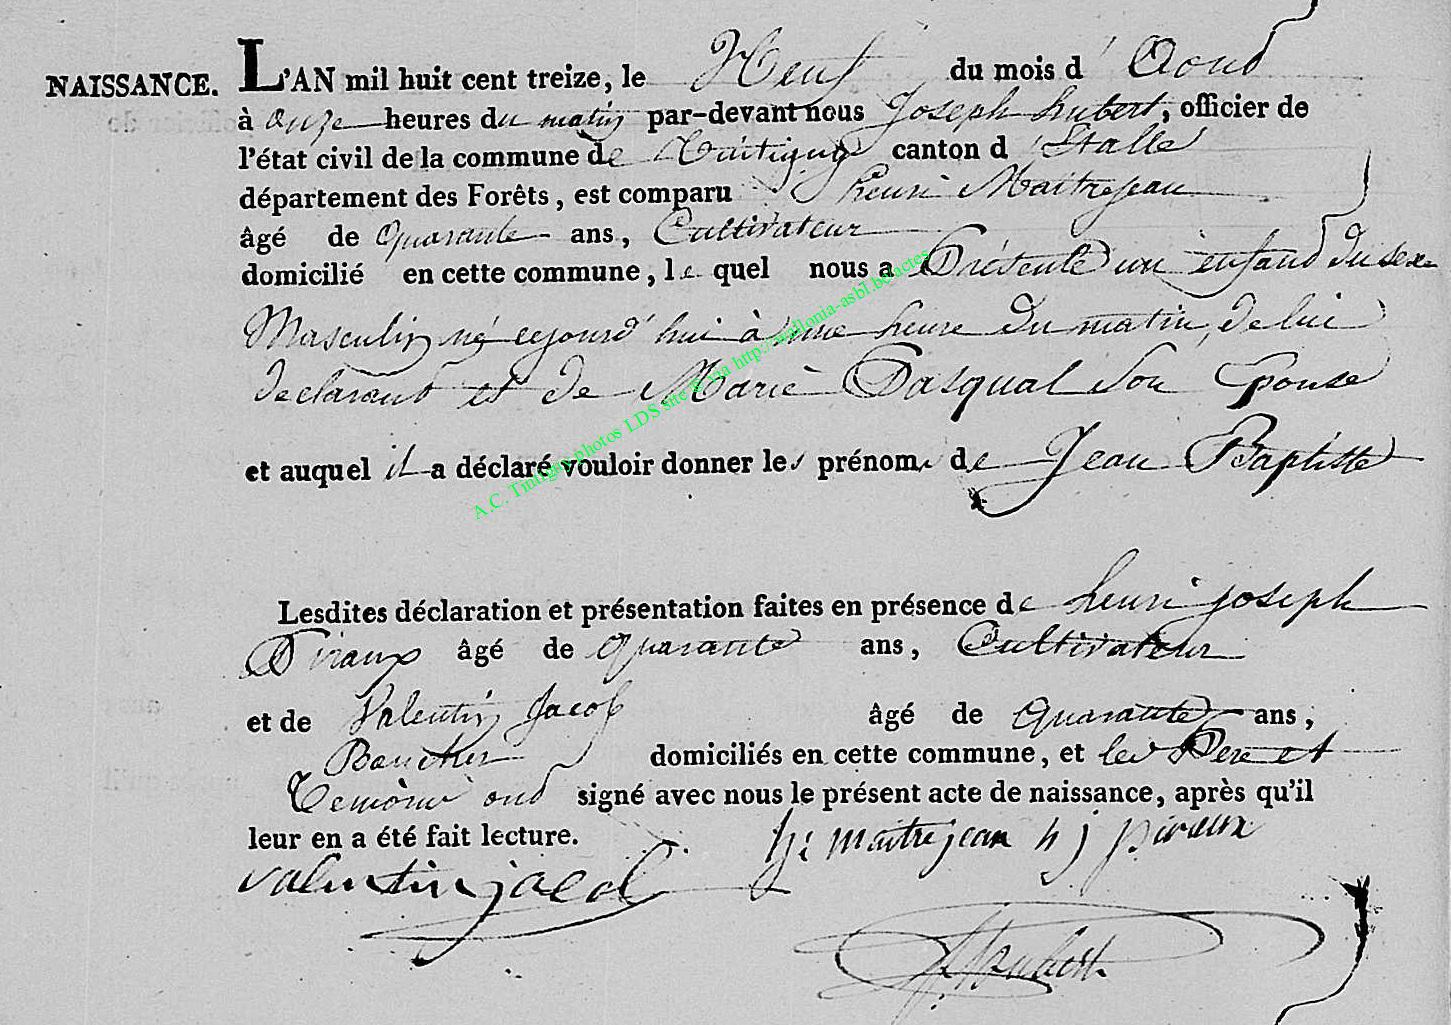 NAISSANCE. L'AN mil huit cent treize, le Neuf du mois d'Aoud
à onze heures du matin par-devant nous Joseph hubert, officier de
l'état civil de la commune de Tintigny canton d'Etalle
département des Forêts, est comparu henri Maitrejean
âgé de Quarante ans, Cultivateur
domicilié en cette commune, le quel nous a Présenté un enfand du sexe
Masculin né cejourd'hui à une heure du matin, de lui
declarant et de Marie Pasqual son Epouse
et auquel il a déclaré vouloir donner les prénoms de Jean Baptiste
Lesdites déclaration et présentation faites en présence de henri joseph
Piraux âgé de quarante ans, Cultivateur
et de Valentin Jacob âgé de Quarante ans,
domiciliés en cette commune, et les Pere et
Temoins ond signé avec nous le présent acte de naissance, après qu'il
leur en a été fait lecture. h: maitrejean h j piraux
valentin jacob
Hubert
A.C. Tintigny photos LDS site © via http://wallonia-asbl.be/actes